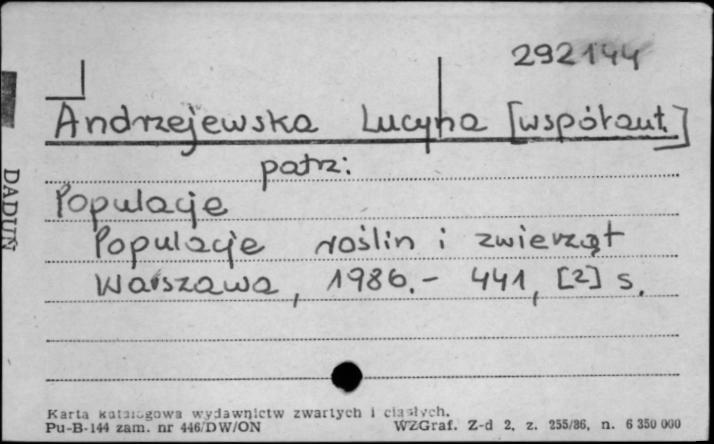 292144
Andrzejewska Lucyna [współaut.]
patrz:
Populacje
Populacje roślin i zwierząt
Warszawa, 1986.- 441, [2] s.
DADUŃ
Karta katalogowa wydawnictw zwartych i ciągłych.
Pu-B-144 zam. nr 446/DW/ON WZGraf. Z-d 2, z. 255/86, n. 6 350 000